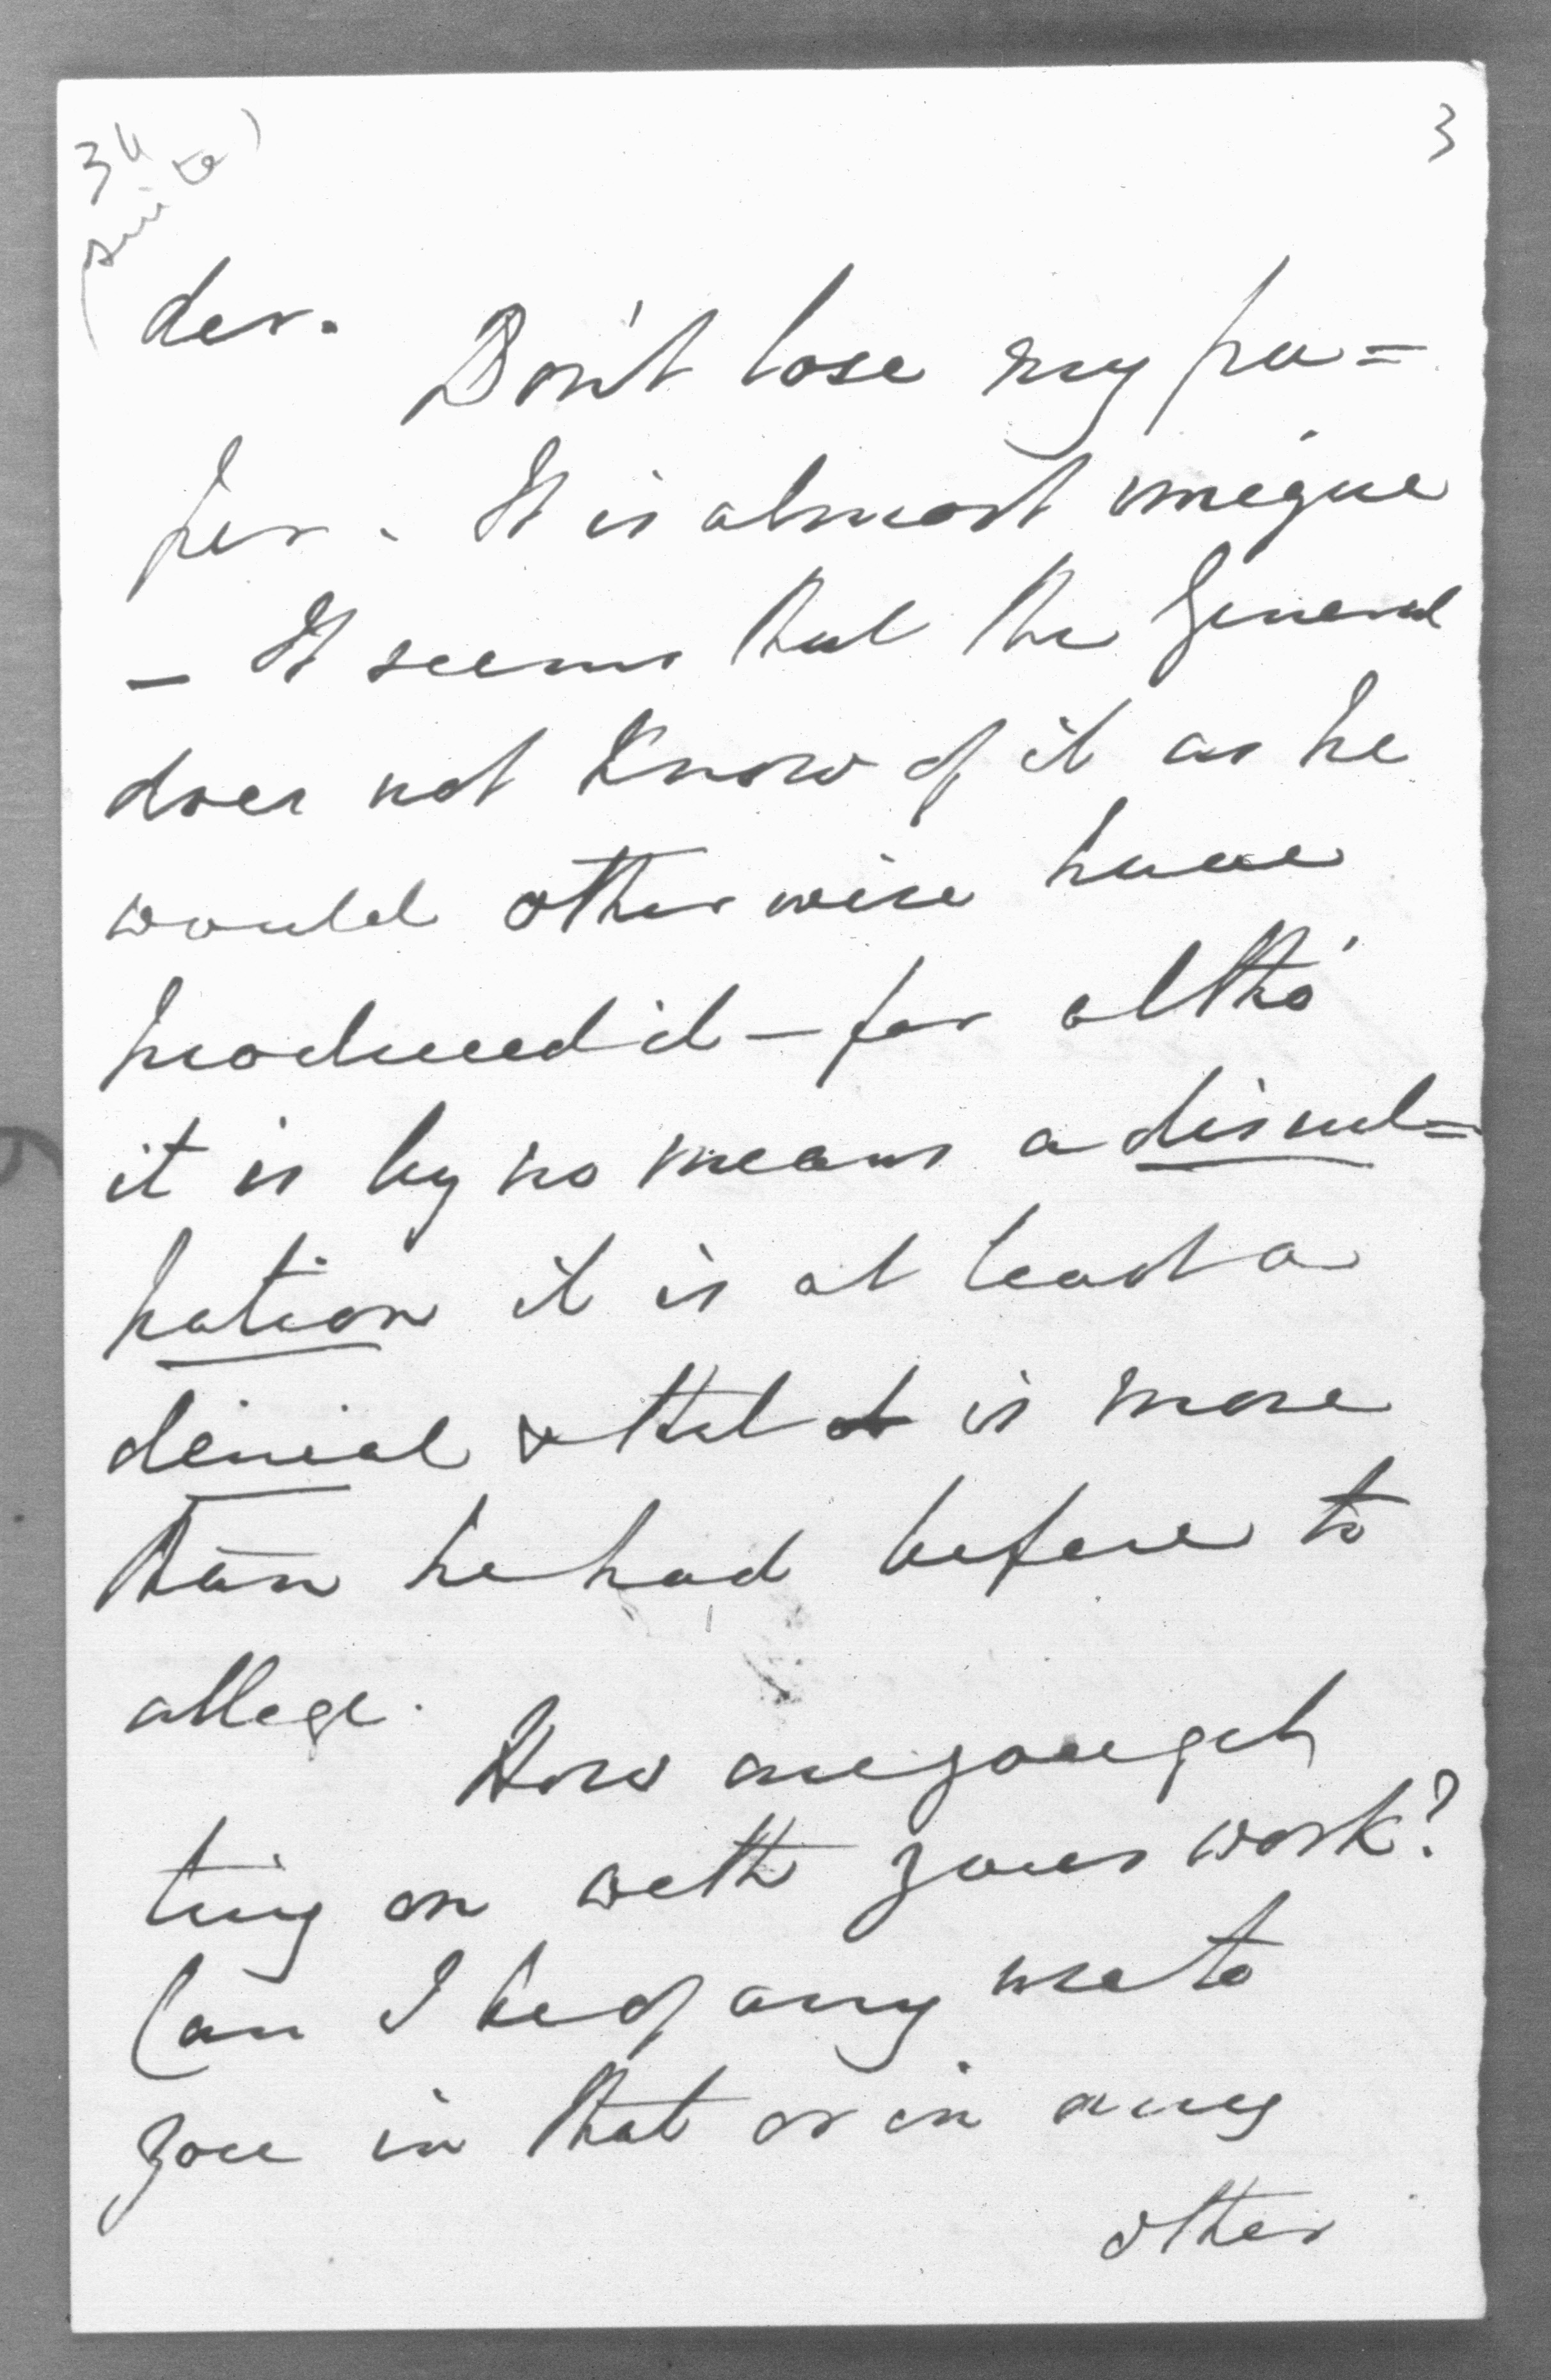 34
(suite)
3
der.
Don't lose my pa=
per. It is almost unique
— It seems that the General
does not know of it as he
would otherwise have
produced it — for altho'
it is by no means a discul=
pation it is at least a
denial & that is more
than he had before to
allege.
How are you get
ting on with your work?
Can I be of any use to
you in that or in any
other